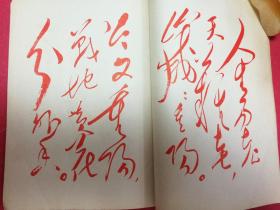 人生易老
天难老，
岁岁重阳。
今又重阳，
战地黄花
分外香。